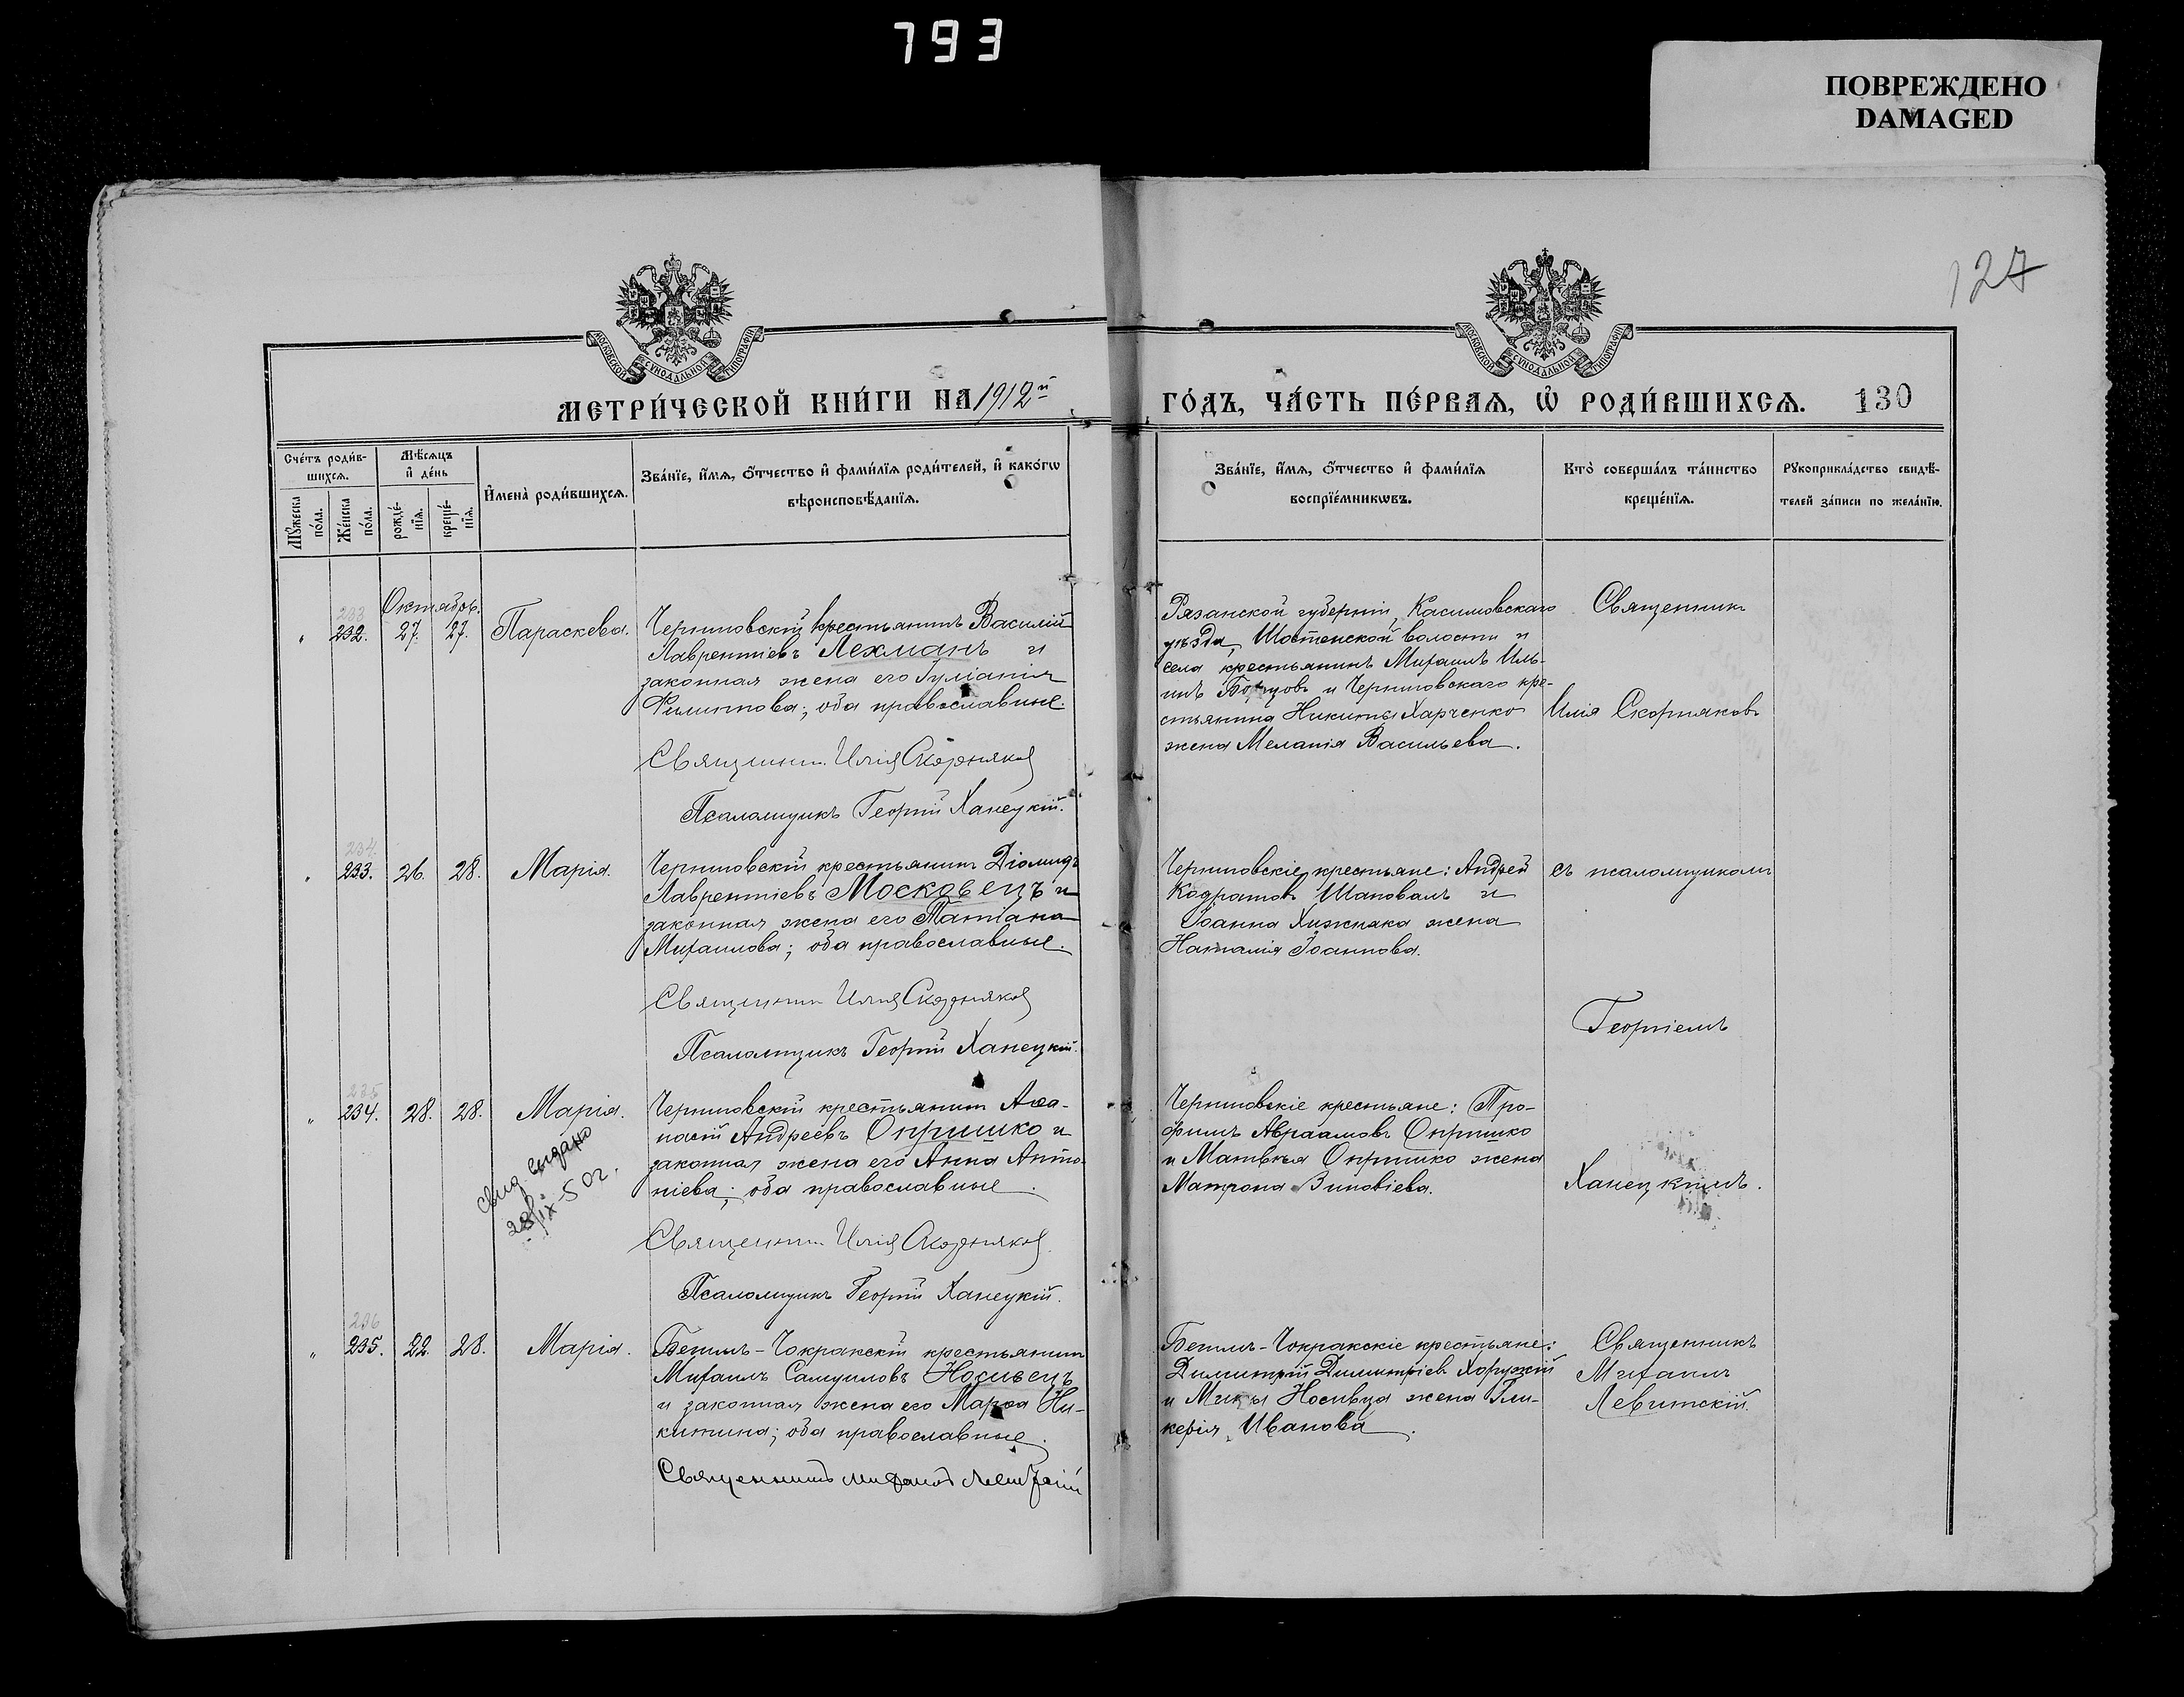 793
ПОВРЕЖДЕНО
DAMAGED
127
МОСКОВСКОЙ СѴНОДАЛЬНОЙ ТИПОГРАФІИ
МОСКОВСКОЙ СѴНОДАЛЬНОЙ ТИПОГРАФІИ
МЕТРИ́ЧЕСКОЙ КНИ́ГИ НА 1912й
ГО́ДЪ, ЧА́СТЬ ПЕ́РВАѦ, Ѡ҆ РОДИ́ВШИХСѦ. 130
Сче́тъ роди́в-
шихсѧ.
Мꙋ́жеска по́ла.
Же́нска по́ла.
Мѣ́сѧцъ
и҆ де́нь
рожде́-
нїѧ.
креще́-
нїѧ.
И҆мена̀ роди́вшихсѧ.
Зва́нїе, и҆́мѧ, ѻ҆́тчество и҆ фами́лїѧ роди́телей, и҆ како́гѡ
вѣроисповѣ́данїѧ.
Зва́нїе, и҆́мѧ, ѻ҆́тчество и҆ фами́лїѧ
воспрїе́мникѡвъ.
Кто̀ соверша́лъ та́инство
креще́нїѧ.
Рꙋкоприкла́дство свидѣ́-
телей за́писи по жела́нїю.
Октябрь.
233
" 232. 27. 27. Параскева.
Черниговскій крестьянинъ Василій
Лаврентіевъ Лехманъ и
законная жена его Іуліанія
Филиппова; оба православные.
Священникъ Илія Скорняковъ
Псаломщикъ Георгій Ханецкій.
Рязанской губерніи, Касимовскаго
уѣзда, волости и
села крестьянинъ Михаилъ Иль-
инъ и Черниговскаго кре-
стьянина Никиты Харченко
жена Меланія Васильева.
Священникъ
Илія Скорняковъ
234.
" 233. 26. 28. Марія.
Черниговскій крестьянинъ Діомидъ
Лаврентіевъ Московецъ и
законная жена его Татіана
Михаилова; оба православные.
Священникъ Илія Скорняковъ
Псаломщикъ Георгій Ханецкій.
Черниговскіе крестьяне: Андрей
Кодратовъ Шаповалъ и
Іоанна Хижняка жена
Наталія Іоаннова.
съ псаломщикомъ
Георгіемъ
235
" 234. 28. 28. Марія.
свид. выдано
28/IX-50 г.
Черниговскій крестьянинъ Аѳа-
насій Андреевъ Опришко и
законная жена его Анна Анто-
ніева; оба православные.
Священникъ Илія Скорняковъ
Псаломщикъ Георгій Ханецкій.
Черниговскіе крестьяне: Тро-
фимъ Авраамовъ Опришко
и Матвѣя Опришко жена
Матрона Зиновіева.
Ханецкимъ.
236
" 235. 22. 28. Марія.
Бешуль-Чокракскій крестьянинъ
Михаилъ Самуиловъ Носивецъ
и законная жена его Марѳа Ни-
китина; оба православные.
Священникъ Михаилъ Левитскій
Чокракскіе крестьяне:
Димитрій Димитріевъ Хоружій
и Носивца жена Гли-
керія Иванова.
Священникъ
Михаилъ
Левитскій.